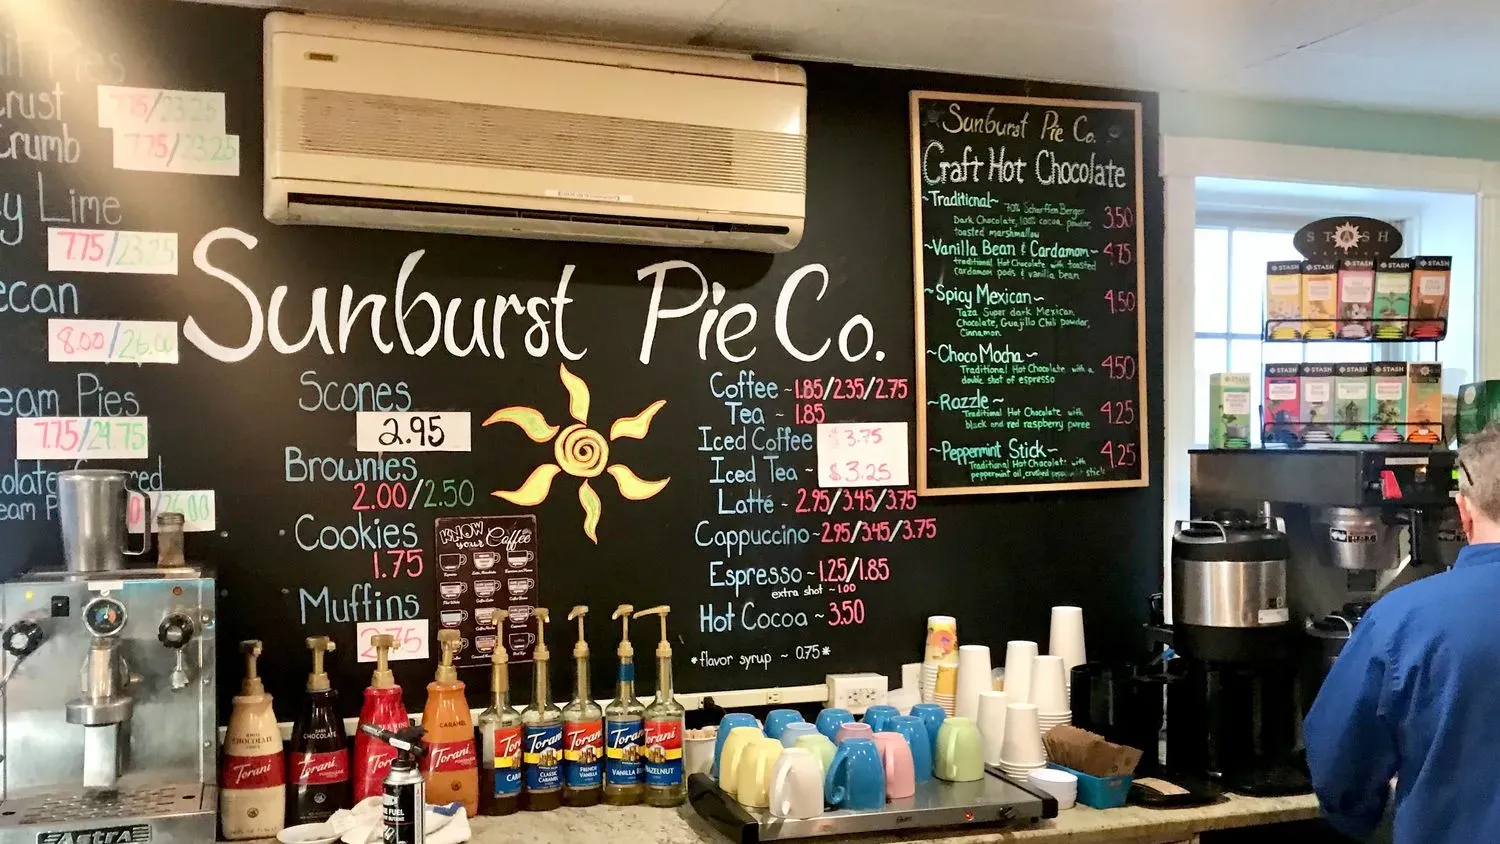 Pies
Crust 7.75/23.25
Crumb 7.75/23.25
Lime
7.75/23.25
ecan
8.00/26.00
eam Pies
7.75/24.75
Sunburst Pie Co.
Scones
2.95
Brownies
2.00/2.50
Cookies
1.75
Muffins
2.75
KNOW
your Coffee
Coffee ~ 1.85/2.35/2.75
Tea ~ 1.85
Iced Coffee $3.75
Iced Tea ~ $3.25
Latté ~ 2.95/3.45/3.75
Cappuccino ~ 2.95/3.45/3.75
Espresso ~ 1.25/1.85
extra shot ~ 1.00
Hot Cocoa ~ 3.50
*flavor syrup ~ 0.75*
Sunburst Pie Co.
Craft Hot Chocolate
~Traditional~ 3.50
70% Scharffen Berger
Dark Chocolate, 100% cocoa powder,
toasted marshmallow
~Vanilla Bean & Cardamom~ 4.75
traditional Hot Chocolate with toasted
cardamom pods & vanilla bean
~Spicy Mexican~ 4.50
Taza Super dark Mexican
Chocolate, Guajillo Chili powder,
Cinnamon
~Choco Mocha~ 4.50
Traditional Hot Chocolate with a
double shot of espresso
~Razzle~ 4.25
Traditional Hot Chocolate with
black and red raspberry puree
~Peppermint Stick~ 4.25
Traditional Hot Chocolate with
peppermint oil, crushed peppermint stick
STASH
STASH
STASH
STASH
STASH
STASH
STASH
STASH
STASH
STASH
STASH
STASH
CHOCOLATE
Torani
DARK
CHOCOLATE
Torani
Torani
CARAMEL
Torani
Torani
CLASSIC
CARAMEL
Torani
FRENCH
VANILLA
Torani
VANILLA
Torani
HAZELNUT
FUEL
ASTRA